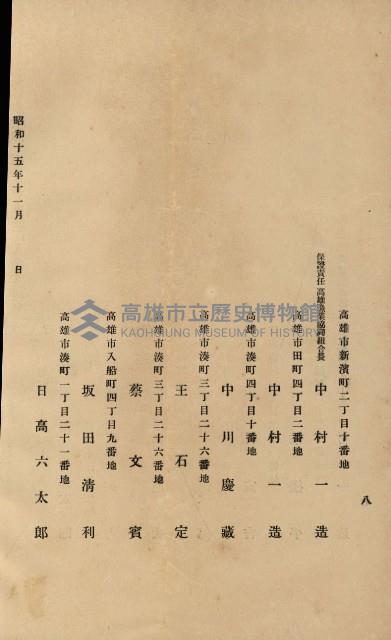 八
高雄市新濱町二丁目十番地
保證責任高雄漁業協同組合長
中村一造
高雄市田町四丁目二番地
中村一造
高雄市湊町四丁目十番地
中川慶藏
高雄市湊町三丁目二十六番地
王石定
高雄市湊町三丁目二十六番地
蔡文賓
高雄市入船町四丁目九番地
坂田淸利
高雄市湊町一丁目二十一番地
日高六太郎
昭和十五年十一月　日
高雄市立歷史博物館
KAOHSIUNG MUSEUM OF HISTORY